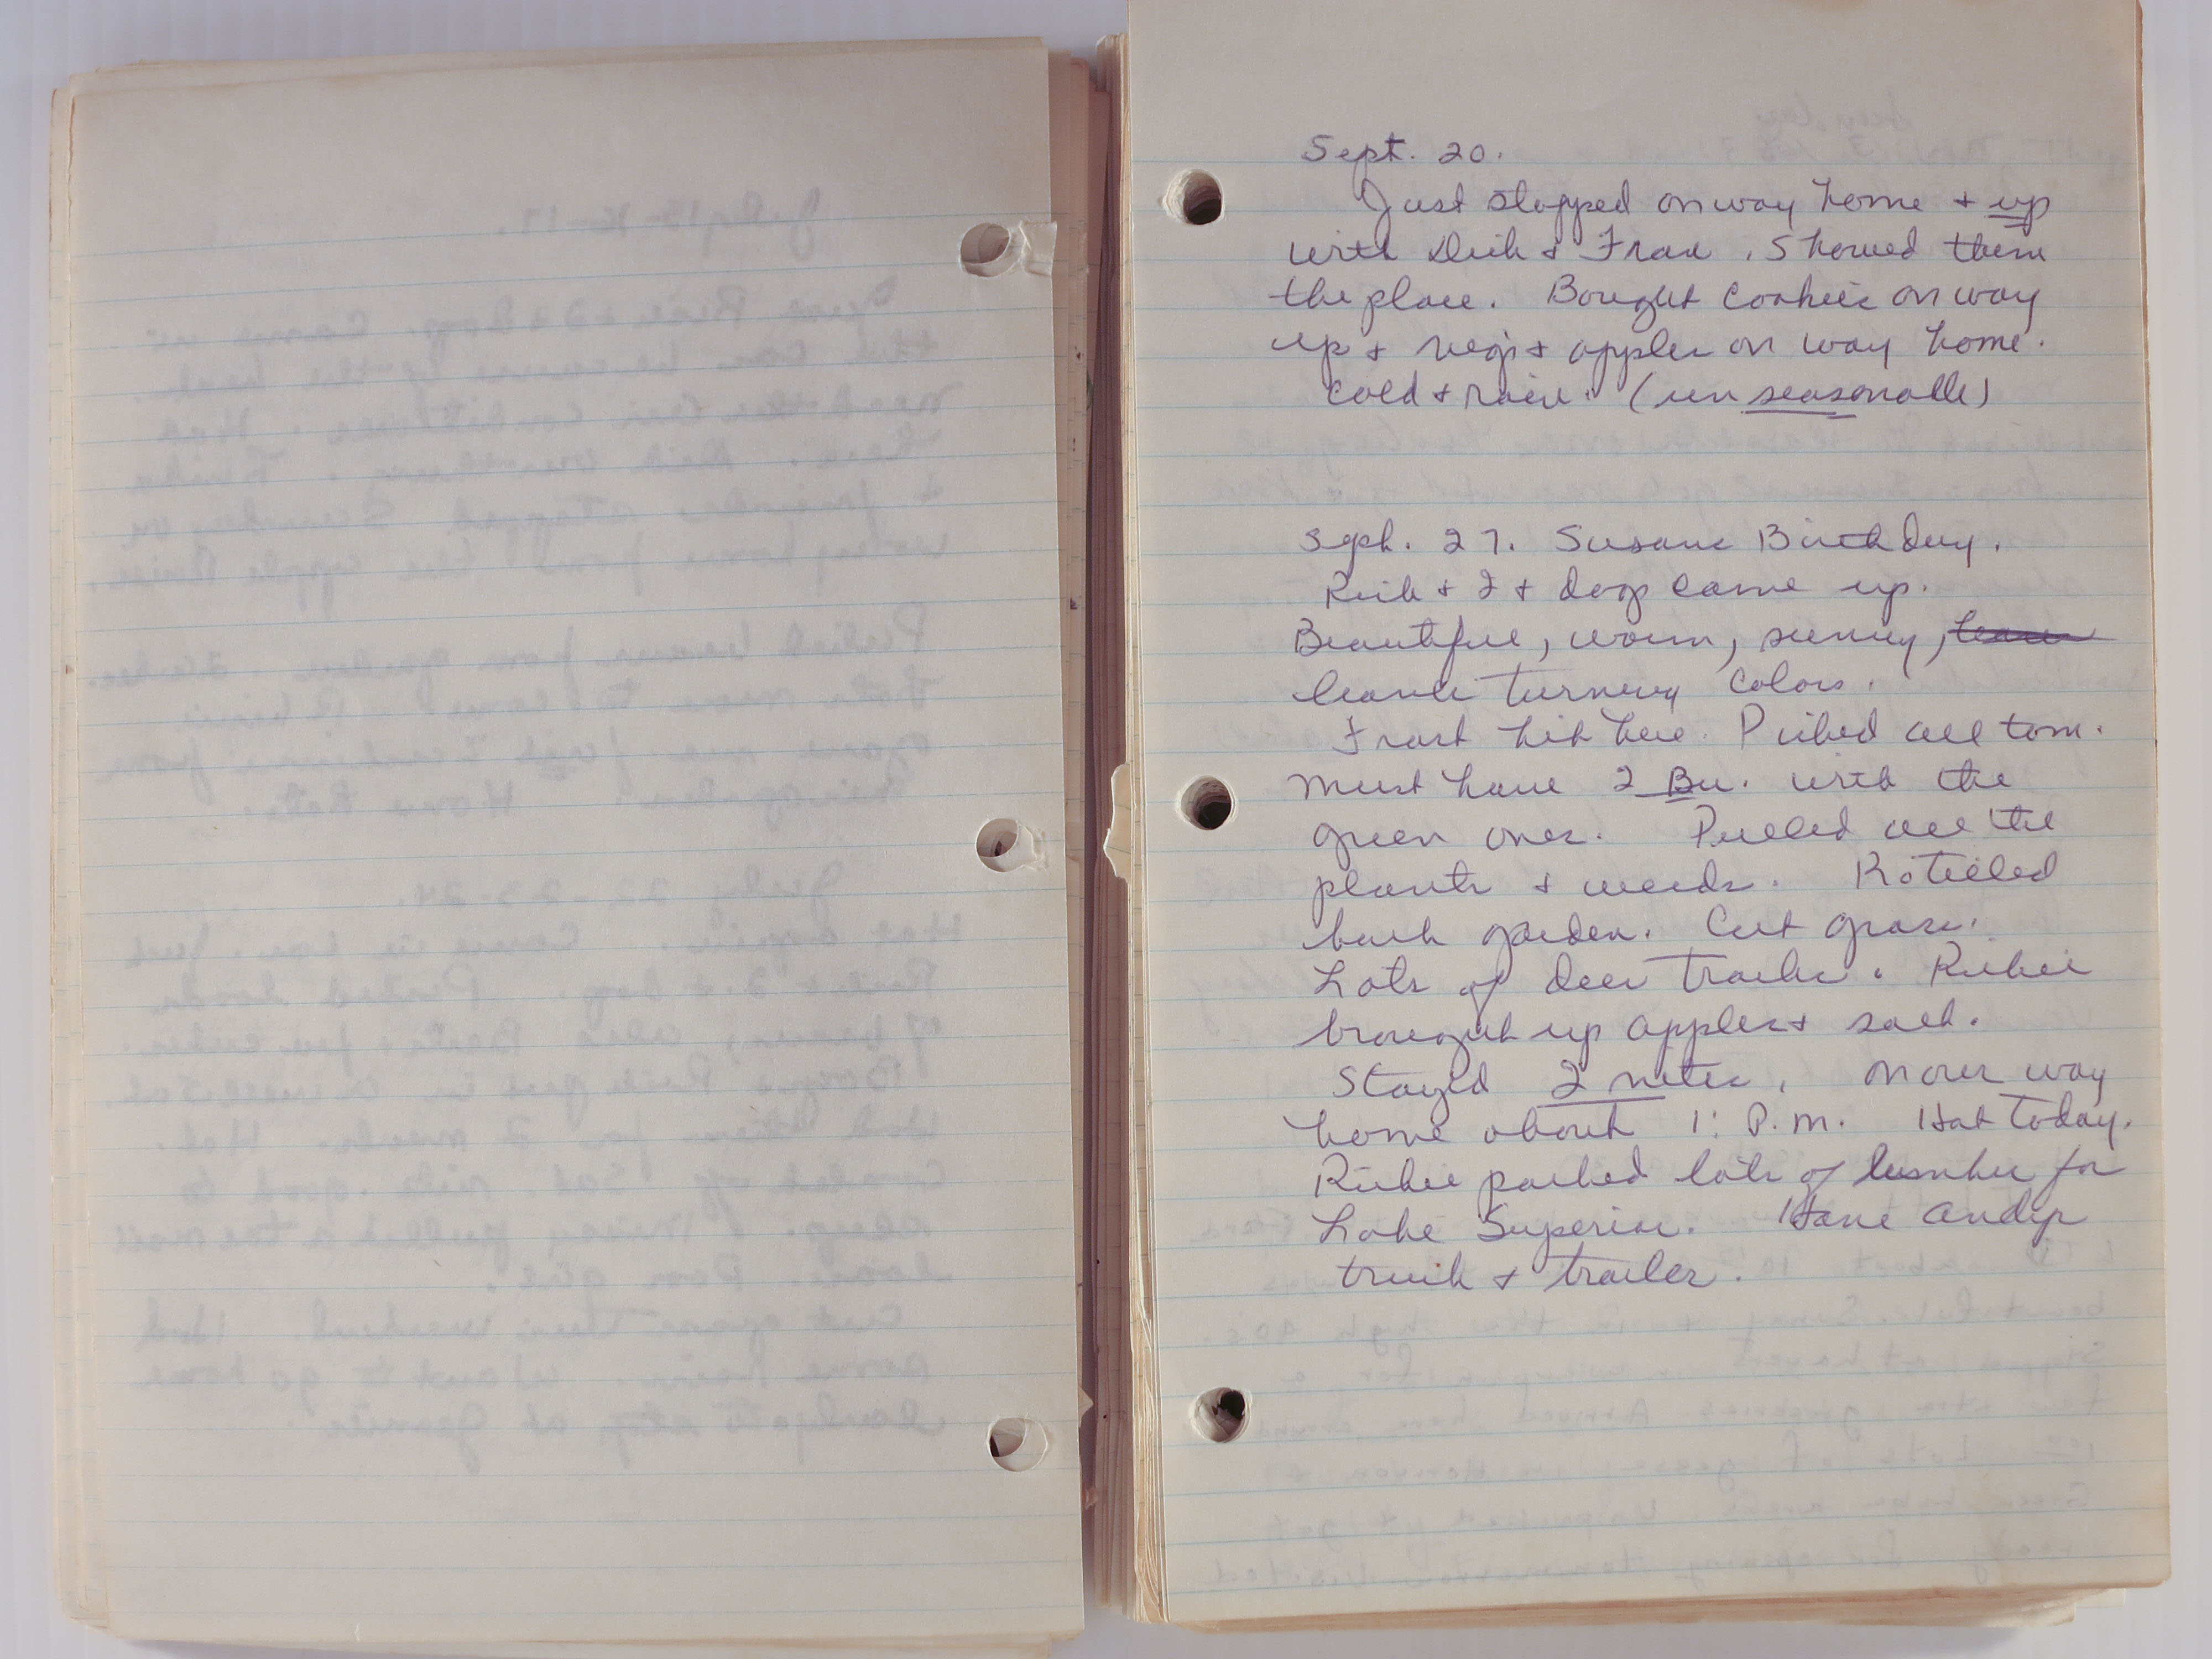 Sept. 20.
Just stopped on way home + up
with Dick + Fran. Showed them
the place. Bought cookies on way
up + vegi + apples on way home.
Cold + rain. (unseasonable)
Sept. 27. Susans Birthday.
Rich + I + dog came up.
Beautiful, warm, sunny,
leaves turning colors.
Frost hit here. Picked all tom.
must have 2 Bu. with the
green ones. Pulled all the
plants + weeds. Rotilled
back garden. Cut grass.
Lots of deer tracks. Richie
brought up apples + salt.
Stayed 2 nites. On our way
home about 1: P.M. Hot today.
Richie packed lots of lumber for
Lake Superior. Have Andys
truck + trailer.